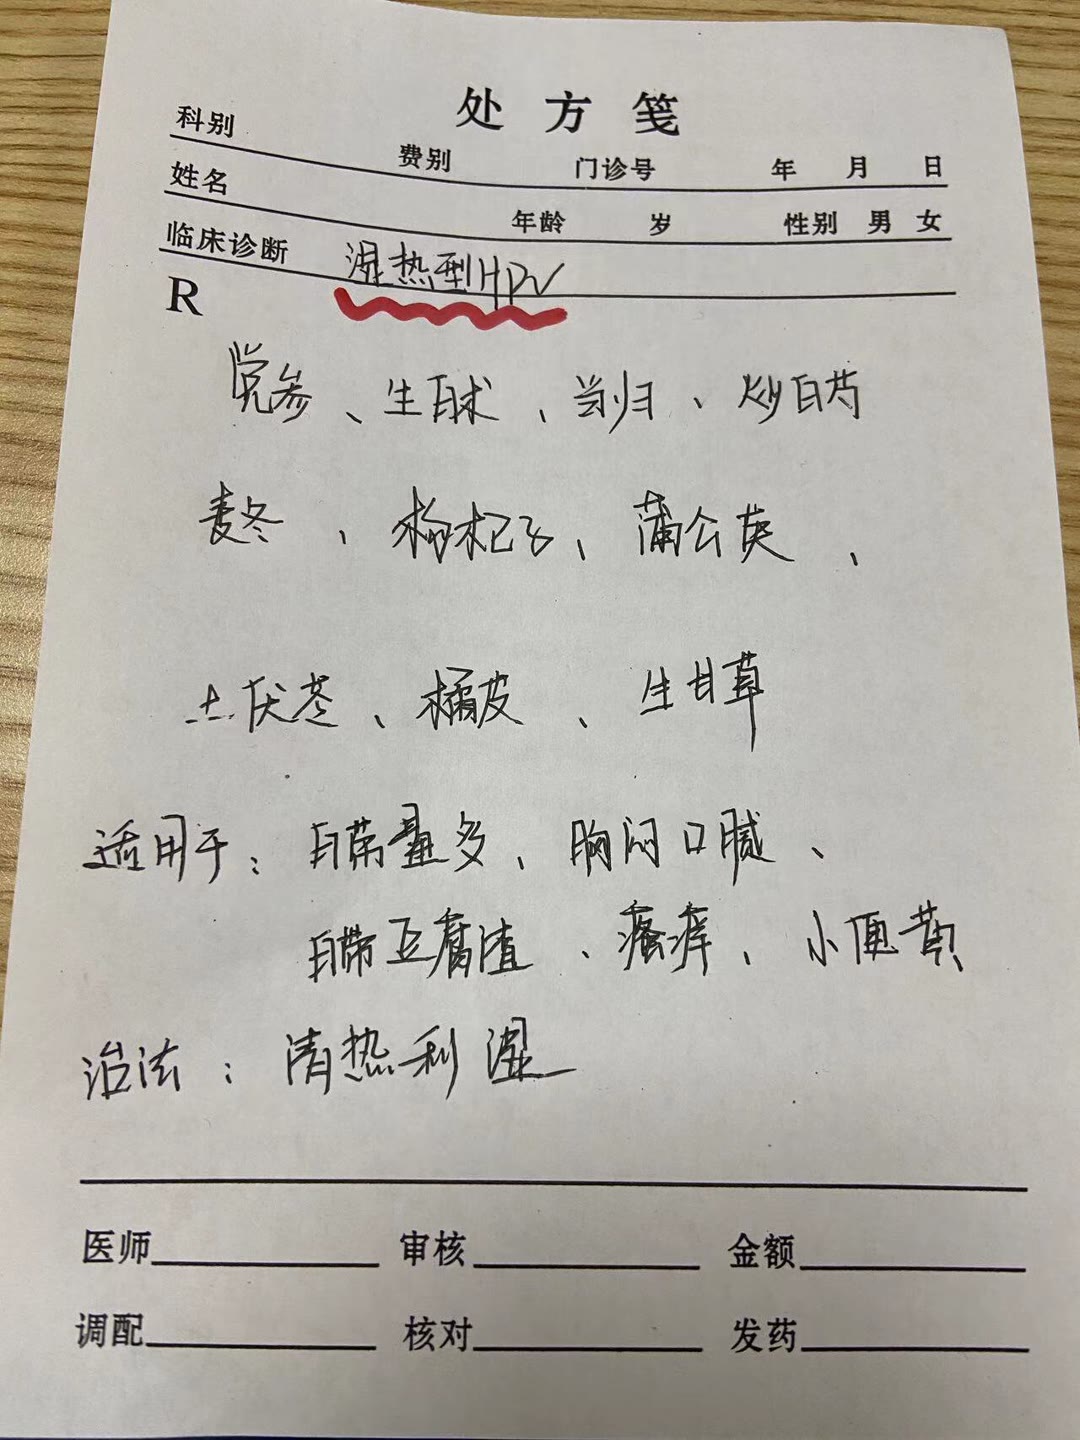 处方笺
科别 费别 门诊号 年 月 日
姓名 年龄 岁 性别 男 女
临床诊断 湿热型HPV
R
党参、生白术、当归、炒白芍
麦冬、枸杞子、蒲公英、
土茯苓、橘皮、生甘草
适用于：白带量多、胸闷口腻、
白带豆腐渣、瘙痒、小便黄
治法：清热利湿
医师 审核 金额
调配 核对 发药